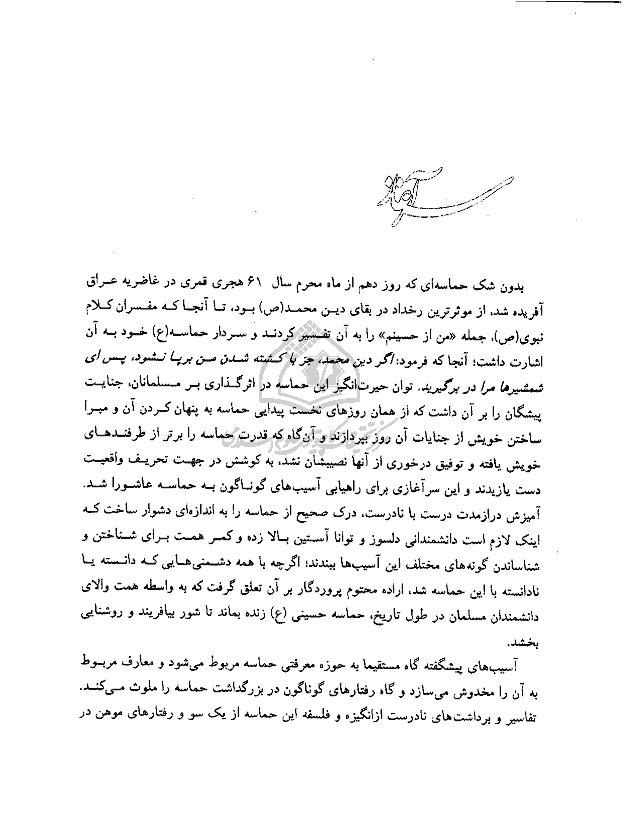 سرآغاز
بدون شک حماسه‌ای که روز دهم از ماه محرم سال ۶۱ هجری قمری در غاضریه عراق
آفریده شد، از موثرترین رخداد در بقای دین محمد(ص) بود، تا آنجا که مفسران کلام
نبوی(ص)، جمله «من از حسینم» را به آن تفسیر کردند و سردار حماسه(ع) خود به آن
اشارت داشت؛ آنجا که فرمود: اگر دین محمد، جز با کشته شدن من برپا نشود، پس ای
شمشیرها مرا در برگیرید. توان حیرت‌انگیز این حماسه در اثرگذاری بر مسلمانان، جنایت
پیشگان را بر آن داشت که از همان روزهای نخست پیدایی حماسه به پنهان کردن آن و مبرا
ساختن خویش از جنایات آن روز بپردازند و آن‌گاه که قدرت حماسه را برتر از طرفندهای
خویش یافته و توفیق درخوری از آنها نصیبشان نشد، به کوشش در جهت تحریف واقعیت
دست یازیدند و این سرآغازی برای راهیابی آسیب‌های گوناگون به حماسه عاشورا شد.
آمیزش درازمدت درست با نادرست، درک صحیح از حماسه را به اندازه‌ای دشوار ساخت که
اینک لازم است دانشمندانی دلسوز و توانا آستین بالا زده و کمر همت برای شناختن و
شناساندن گونه‌های مختلف این آسیب‌ها ببندند؛ اگرچه با همه دشمنی‌هایی که دانسته یا
نادانسته با این حماسه شد، اراده محتوم پروردگار بر آن تعلق گرفت که به واسطه همت والای
دانشمندان مسلمان در طول تاریخ، حماسه حسینی (ع) زنده بماند تا شور بیافریند و روشنایی
بخشد.
آسیب‌های پیشگفته گاه مستقیما به حوزه معرفتی حماسه مربوط می‌شود و معارف مربوط
به آن را مخدوش می‌سازد و گاه رفتارهای گوناگون در بزرگداشت حماسه را ملوث می‌کند.
تفاسیر و برداشت‌های نادرست ازانگیزه و فلسفه این حماسه از یک سو و رفتارهای موهن در